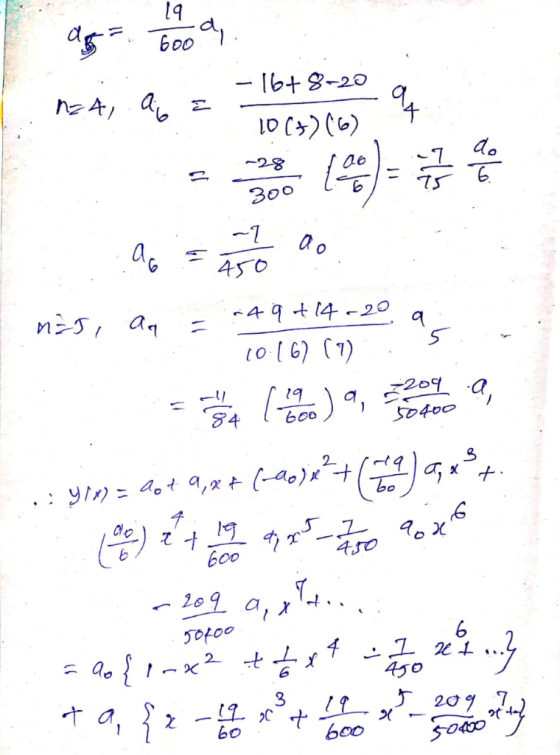 a₅ = 19/600 a₁
n=4, a₆ = (-16+8-20)/(10(5)(6)) a₄
= -28/300 (a₀/6) = -7/75 a₀/6
a₆ = -7/450 a₀
n=5, a₇ = (-49+14-20)/(10(6)(7)) a₅
= -11/84 (19/600) a₁ = -209/50400 a₁
∴ y(x) = a₀ + a₁x + (-a₀)x² + (-19/60) a₁x³ +
(a₀/6) x⁴ + 19/600 a₁x⁵ - 7/450 a₀x⁶
- 209/50400 a₁x⁷ + ....
= a₀ { 1 - x² + 1/6 x⁴ - 7/450 x⁶ + ...}
+ a₁ { x - 19/60 x³ + 19/600 x⁵ - 209/50400 x⁷ + }